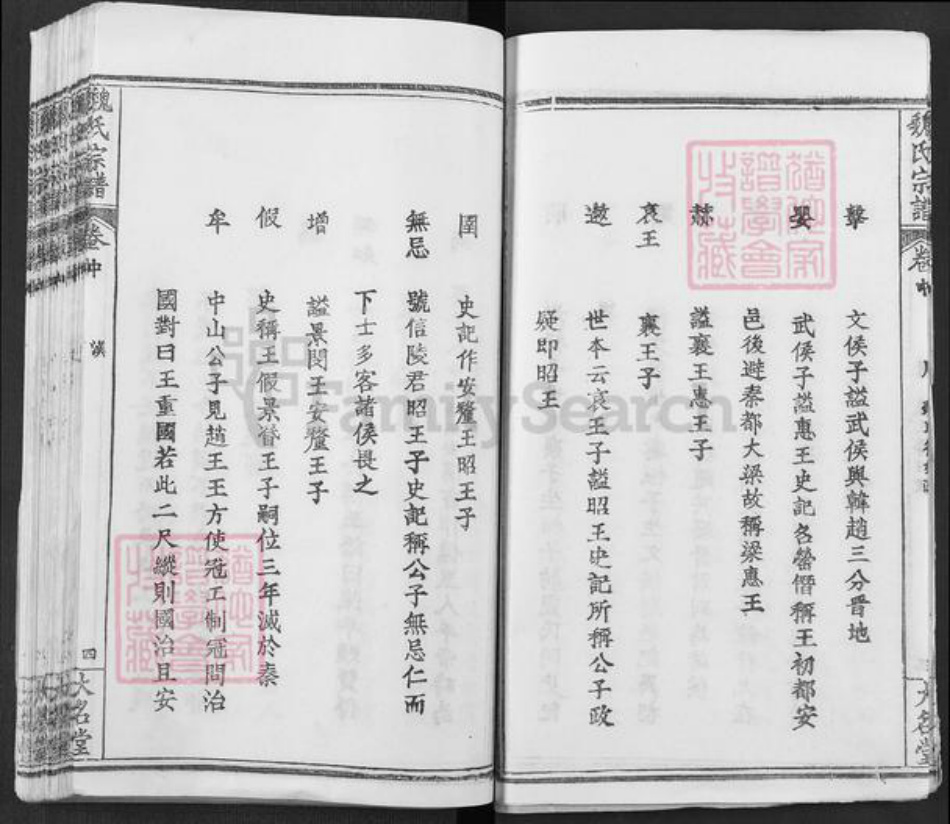 魏氏宗譜
卷中
擊 文侯子謚武侯與韓趙三分晋地
嬰 武侯子謚惠王史記名罃僭稱王初都安
邑後避秦都大梁故稱梁惠王
赫 謚襄王惠王子
哀王 襄王子
遬 世本云哀王子謚昭王史記所稱公子政
疑即昭王
圉 史記作安釐王昭王子
無忌 號信陵君昭王子史記稱公子無忌仁而
下士多客諸侯畏之
增 謚景閔王安釐王子
假 史稱王假景湣王子嗣位三年滅於秦
牟 中山公子見趙王王方使冠工制冠問治
國對曰王重國若此二尺縱則國治且安
魏氏宗譜
卷中
四
大名堂
大名堂
猶他家
譜學會
收藏
猶他家
譜學會
收藏
FamilySearch